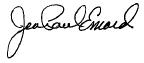 Jean Paul Emard